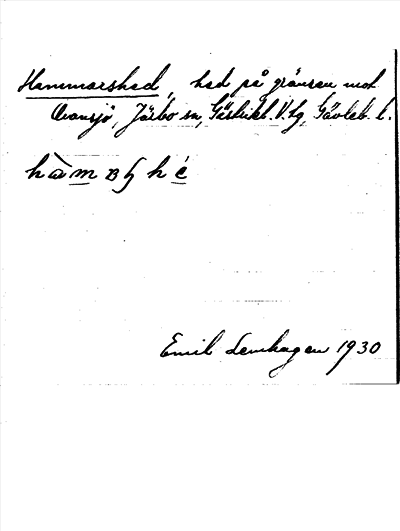 Hammarshed, hed på gränsen mot
Ovansjö, Järbo sn, Gästrikl. V. tg, Gävleb. l.
Emil Lenhagen 1930